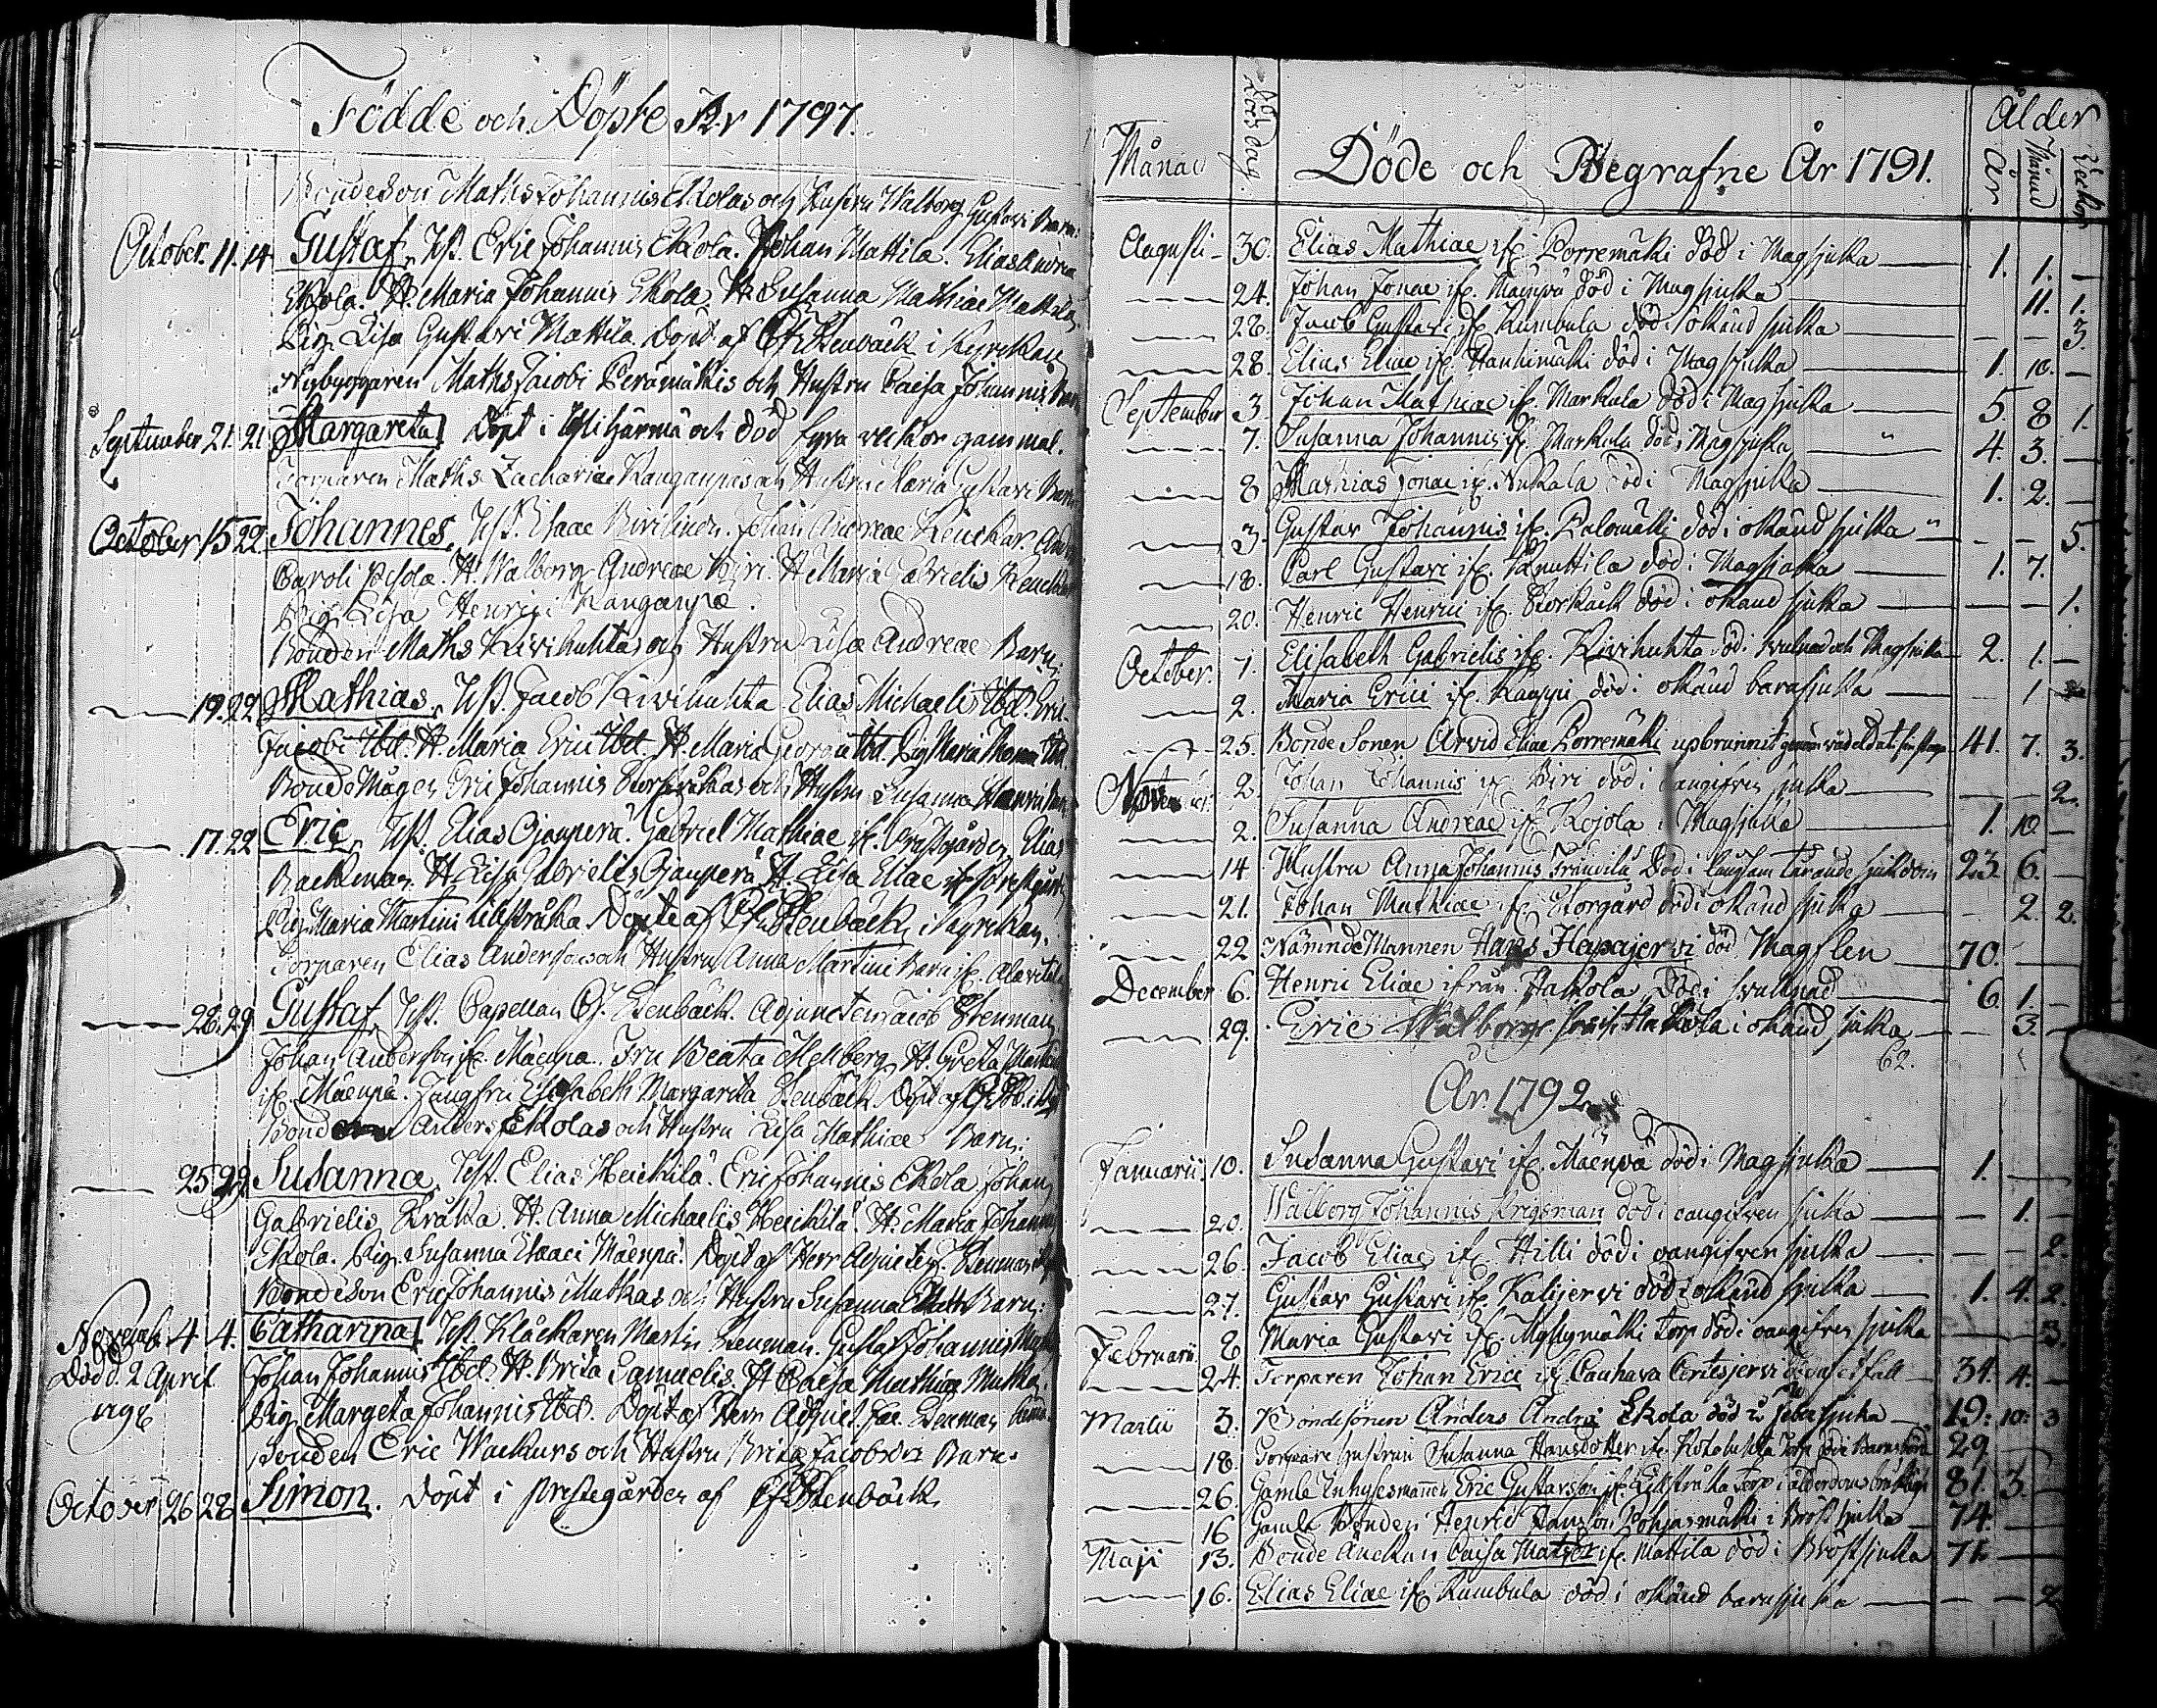 Födde och Döpte År 1797.
Bondeson Maths Johannis Ekolas och Hustru Walborg Gustavi Barn:
October. 11. 14. Gustaf. Test. Eric Johannis Ekola. Johan Mattila. Elias Andreæ
Ekola. H. Maria Johannis Ekola. H. Susanna Mathiæ Mattila
Pig. Lisa Gustavi Mattila. Döpt af Stenbäck i Kyrckan
Nybyggaren Maths Jacobi Perämäkis och Hustru Caisa Johannis Barn
September 21. 21. Margareta. Döpt i Ylihärmä och död fyra veckor gammal.
Torparen Maths Zachariæ Kangaspäs och Hustru Maria Gustavi Barn
October 15 22. Johannes. Test. Isaac. Johan Andreæ
Caroli. H. Walborg Andreæ. H. Maria Gabrielis
Pig. Lisa Henrici Kangaspä.
Bonden Maths Kivihuhtas och Hustru Lisa Andreæ Barn:
19. 22 Mathias. Test. Jacob Kivihuhta Elias Michaelis Ibd. Eric
Jacobi Ibd. H. Maria Erici Ibd. H. Maria Georgii Ibd. Pig. Maria Thomæ Ibd.
Bonde Mågen Eric Johannis och Hustru Susanna Henrici Barn
17. 22 Eric. Test. Elias Ojanperä. Gabriel Mathiæ if. Prestgården Elias
Backman. H. Lisa Gabrielis Ojanperä H. Lisa Eliæ if Prestgård
Pig. Maria Martini Lillstråka Döpte af Stenbäck i Kyrckan.
Torparen Elias Andersson och Hustru Anna Martini Barn if. Alavitala
28. 29 Gustaf. Test. Capellan Stenbäck. Adjuncten Jacob Stenman
Johan Andersson if. Mäenpä. Fru Beata Hellberg. H. Greta
if. Mäenpä. Jungfru Elisabeth Margareta Stenbäck Döpt af
Bonden Anders Ekolas och Hustru Lisa Mathiæ Barn:
25 29 Susanna. Test. Elias Heickilä. Eric Johannis Ekola Johan
Gabrielis Kråka. H. Anna Michaelis Heickilä. H. Maria Johannis
Ekola. Pig. Susanna Isaaci Mäenpä. Döpt af Herr Adjuncten. Stenman
Bondeson Eric Johannis Mutkas och Hustru Susanna Barn:
November 4 4. Catharina. Test. Klåckaren Martin Stenman. Gustaf Johannis
Död d. 2 April Johan Johannis Ibd. H. Brita Samuelis. H Caisa Mathiæ Mutka.
1798 Pig. Margeta Johannis Ibd. Döpt af Herr Adjunct. Jac. Stenman
Bonden Eric Wackurs och Hustru Brita Jacobsdr Barn.
October 26 28 Simon. Döpt i prestegården af Stenbäck
Månad Dödsdag Döde och Begrafne År 1791. Ålder År Månad Veckor
Augusti 30. Elias Mathiæ if. Porremäki död i Magsjuka 1. 1.
24. Johan Jonæ if. Mäenpä död i Magsjuka 11. 1.
28. Jacob Gustavi if. Kumbula död i okänd sjuka 3.
28. Elias Eliæ if. Hanhimäki död i Magsjuka 1. 10.
September 3. Johan Mathiæ if. Markula död i Magsjuka 5 8 1.
7. Susanna Johannis if. Markula död i Magsjuka 4. 3.
8 Mathias Jonæ if. Nukala död i Magsjuka 1. 2.
3. Gustav Johannis if. Palomäki död i okänd sjuka 5.
18. Carl Gustavi if. Knuttila död i Magsjuka 1. 7.
20. Henric Henrici if. Storkåck död i okänd sjuka 1.
October. 7. Elisabeth Gabrielis if. Kivihuhta död i svulnad och Magsjuka 2. 1.
2. Maria Erici if. Kauppi död i okänd barnsjuka 1
25. Bonde Sonen Arvid Eliæ Porremäki upbrunnit genom vådeld 41. 7. 3.
November 2. Johan Johannis if Piri död i oangifven sjuka 2.
2. Susanna Andreæ if. Kojola i Magsjuka 1. 10.
14 Hustru Anna Johannis död i långsam tärande sjukdom 23. 6.
21. Johan Mathiæ if. Storgård död i okänd sjuka 2. 2.
22 NämndeMannen Hans Hapajervi död Magflen 70.
December 6. Henric Eliæ ifrån Hakola död i svullnad 6. 1.
29. Eric Walborgs son if. Hakola i okänd sjuka 3.
62.
År. 1792
Januarii 10. Susanna Gustavi if. Mäenpä död i Magsjuka 1.
20. Walborg Johannis Krigsman död i oangifven sjuka 1.
26. Jacob Eliæ if. Hilli död i oangifven sjuka 2.
27. Gustav Gustavi if. Kalijervi död i okänd sjuka 1. 4. 2.
Februarii 8 Maria Gustavi if. Myllymäki torp död i oangifven sjuka 3.
24. Torparen Johan Erici if. Cauhava 34. 4.
Martii 3. Bondesonen Anders Andreæ Ekola död i febersjuka 19. 10. 3
18. Torpare hustrun Susanna Hansdotter if. Torp död i Barnsbörd 29
26. Gamle Inhysesmannen Eric Gustavsson if. Lillstråka torp i ålderdoms bräcklighet 81. 3.
16 Gamle Bonden Henric Hansson Pohjasmäki i Bröstsjuka 74.
Maji 13. Bonde Änckan Caisa Matsdr if. Mattila död i Bröstsjuka 71.
16. Elias Eliæ if Kumbula död i okänd barnsjuka 2